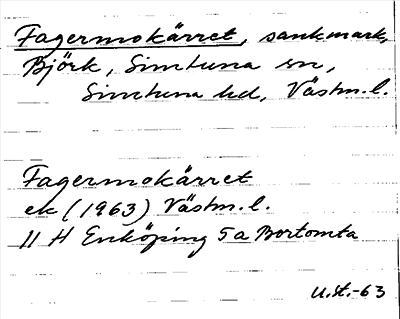 Fagermokärret, sankmark,
Björk, Simtuna sn,
Simtuna hd, Västm.l.
Fagermokärret
ek (1963) Västm.l.
11 H Enköping 5a Bortomta
U.St.-63